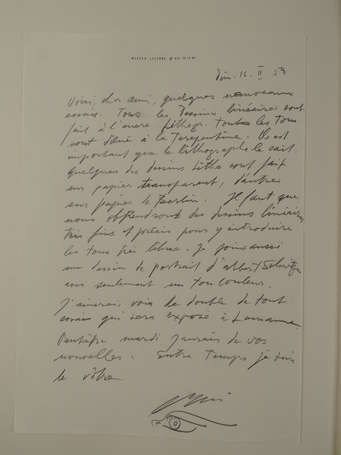 16. II 53
Voici, cher ami, quelques nouveaux
essais. Tous les dessins linéaires sont
fait à l'encre lithogr. toutes les tons
sont dilué à la Terepentine. Il est
important que le lithographe le sait.
Quelques des dessins litho sont fait
sur papier transparant, d'autres
sur papier. Il faut que
nous obtiendront des dessins linéaires
très fins et précis pour y introduire
les tons très libres. Je joins aussi
un dessin de portrait d'Albert Schweitzer
avec seulement un ton couleur.
J'aimerais voir le double de tout
essais qui sera exposé à Lausanne
Peutêtre mardi j'aurais de vos
nouvelles. Entre Temps je suis
le vôtre